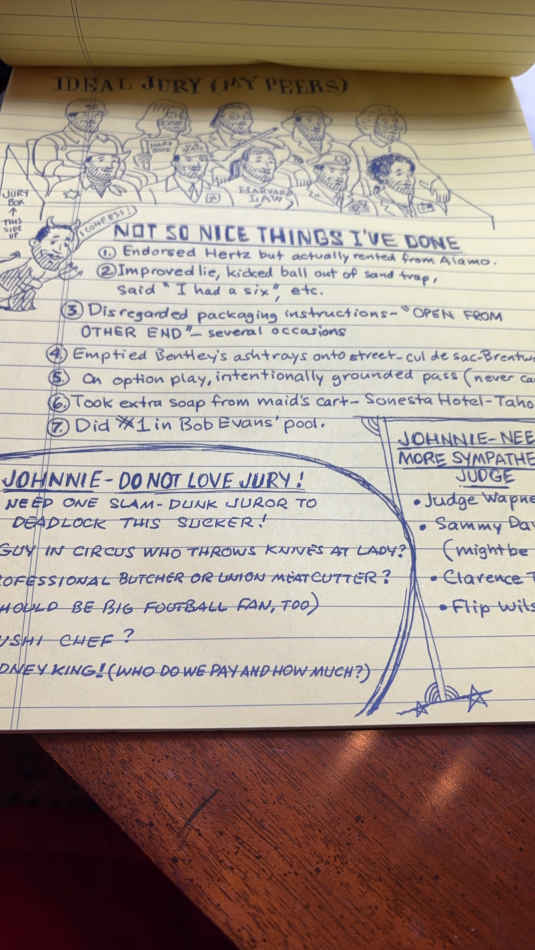 IDEAL JURY (MY PEERS)
HARVARD
LAW
JURY
BOX
↑
THIS
SIDE
UP
I CONFESS!
NOT SO NICE THINGS I'VE DONE
① Endorsed Hertz but actually rented from Alamo.
② Improved lie, kicked ball out of sand trap,
said "I had a six", etc.
③ Disregarded packaging instructions- "OPEN FROM
OTHER END" - several occasions
④ Emptied Bentley's ashtrays onto street-cul de sac-Brentw
⑤ On option play, intentionally grounded pass (never ca
⑥ Took extra soap from maid's cart- Sonesta Hotel-Taho
⑦ Did #1 in Bob Evans' pool.
JOHNNIE - DO NOT LOVE JURY!
NEED ONE SLAM-DUNK JUROR TO
DEADLOCK THIS SUCKER!
GUY IN CIRCUS WHO THROWS KNIVES AT LADY?
OFESSIONAL BUTCHER OR UNION MEATCUTTER?
HOULD BE BIG FOOTBALL FAN, TOO)
USHI CHEF?
DNEY KING! (WHO DO WE PAY AND HOW MUCH?)
JOHNNIE-NEE
MORE SYMPATHE
JUDGE
• Judge Wapne
• Sammy Da
(might be
• Clarence T
• Flip Wils